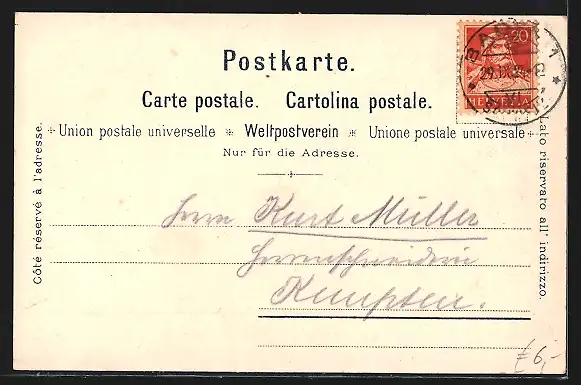 Postkarte.
Carte postale. Cartolina postale.
Union postale universelle * Weltpostverein * Unione postale universale
Nur für die Adresse.
Côté réservé à l'adresse.
Lato riservato all' indirizzo.
20
HELVETIA
BASEL 1
29.IX.
Herrn Kurt Müller
Herrenschneiderei
Kempten.
€6,-